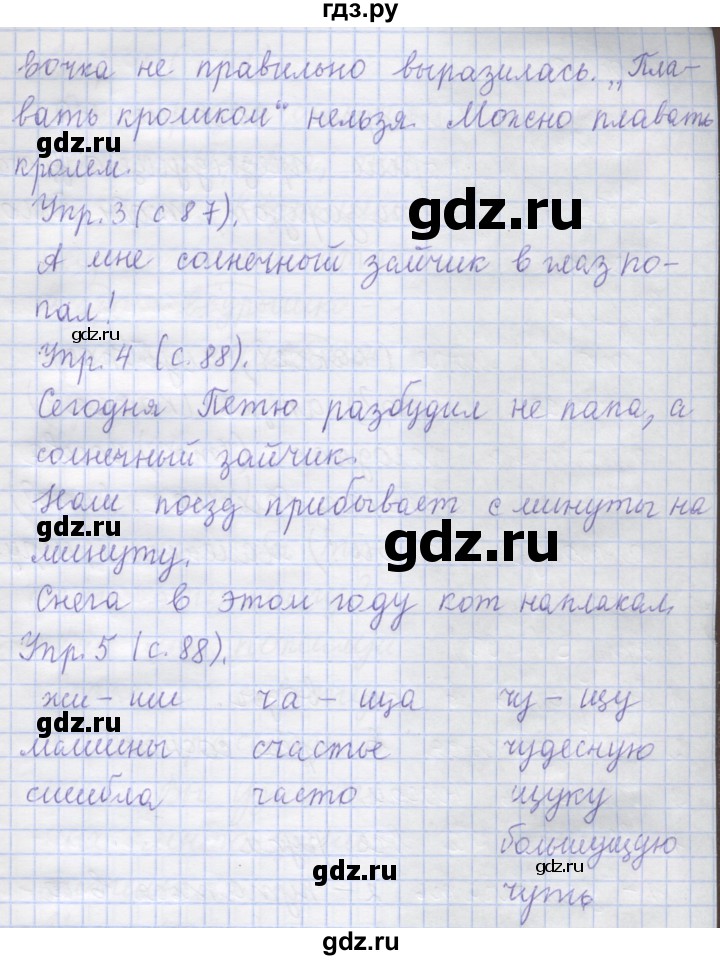 гдз.ру
вочка не правильно выразилась. „Пла-
вать кроликом“ нельзя. Можно плавать
gdz.ru
кролем.
gdz.ru
Упр. 3 (с 87).
А мне солнечный зайчик в глаз по-
пал!
gdz.ru
Упр. 4 (с. 88).
Сегодня Петю разбудил не папа, а
gdz.ru
солнечный зайчик.
Наш поезд прибывает с минуты на
gdz.ru
gdz.ru
минуту.
Снега в этом году кот наплакал.
Упр. 5 (с. 88).
жи - ши ча - ща чу - щу
gdz.ru
машины счастье чудесную
сшибла часто щуку
большущую
gdz.ru
gdz.ru
чуть
gdz.ru